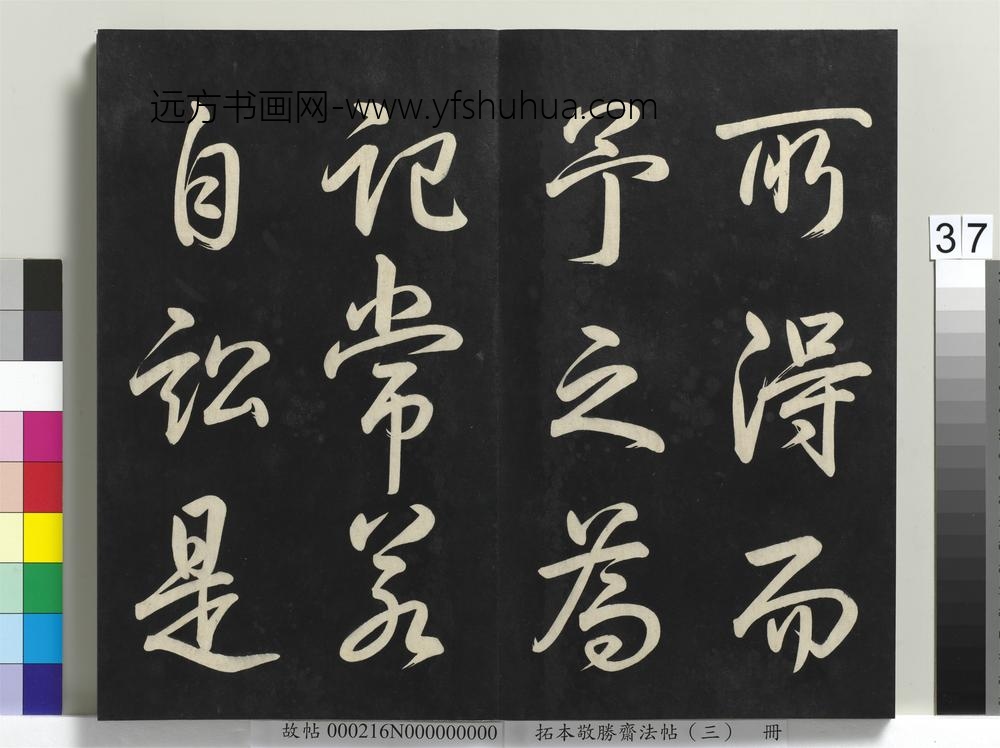 所得而
予之為
記常
自訟是
远方书画网-www.yfshuhua.com
37
故帖 000216N000000000 拓本敬勝齋法帖（三） 冊